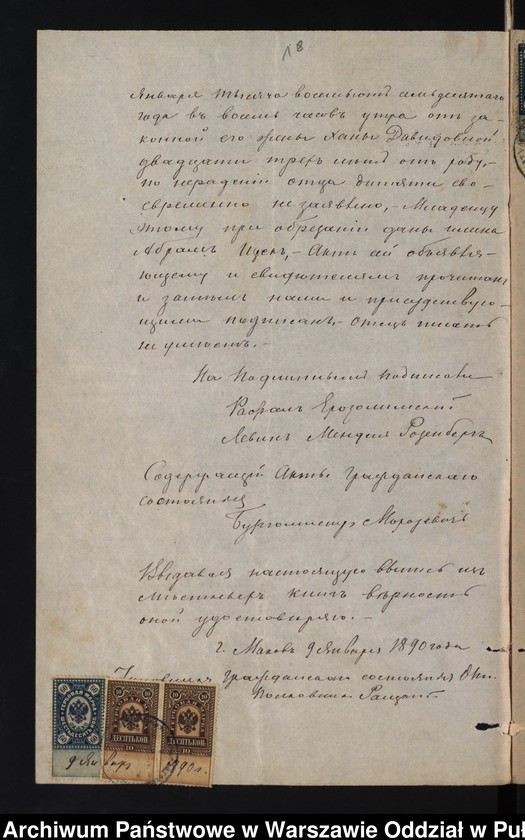 18
Января тысяча восемьсотъ семьдесятаго
года въ восемь часовъ утра отъ за-
конной его жены Ханы Давидовной
двадцати трехъ лѣтъ отъ роду,-
по нераденiй отца дитяти сво-
евременно не заявлено,- Младенцу
этому при обрѣзанiй даны имена
Абрамъ Ицекъ,- Актъ сей объявля-
ющему и свидѣтелямъ прочитанъ
и затѣмъ нами и присудствую-
щими подписанъ,- Отецъ писать
не умѣетъ.-
На подлинныхъ подписали
Рафалъ Ерозолимскiй
Левинъ Мендель Розенбергъ
Содержащiй Акты Гражданскаго
состоянiя
Бургомистръ
Выдавая настоящую выпись изъ
книгъ вѣрность
оной удостовѣряю.-
г. Маковъ 9 Января 1890 года
Гражданскаго состоянiя
10
10
10
10
ДЕСЯТЬ КОП.
ДЕСЯТЬ КОП.
10
10
9 Января 1890 г.
Archiwum Państwowe w Warszawie Oddział w Pu